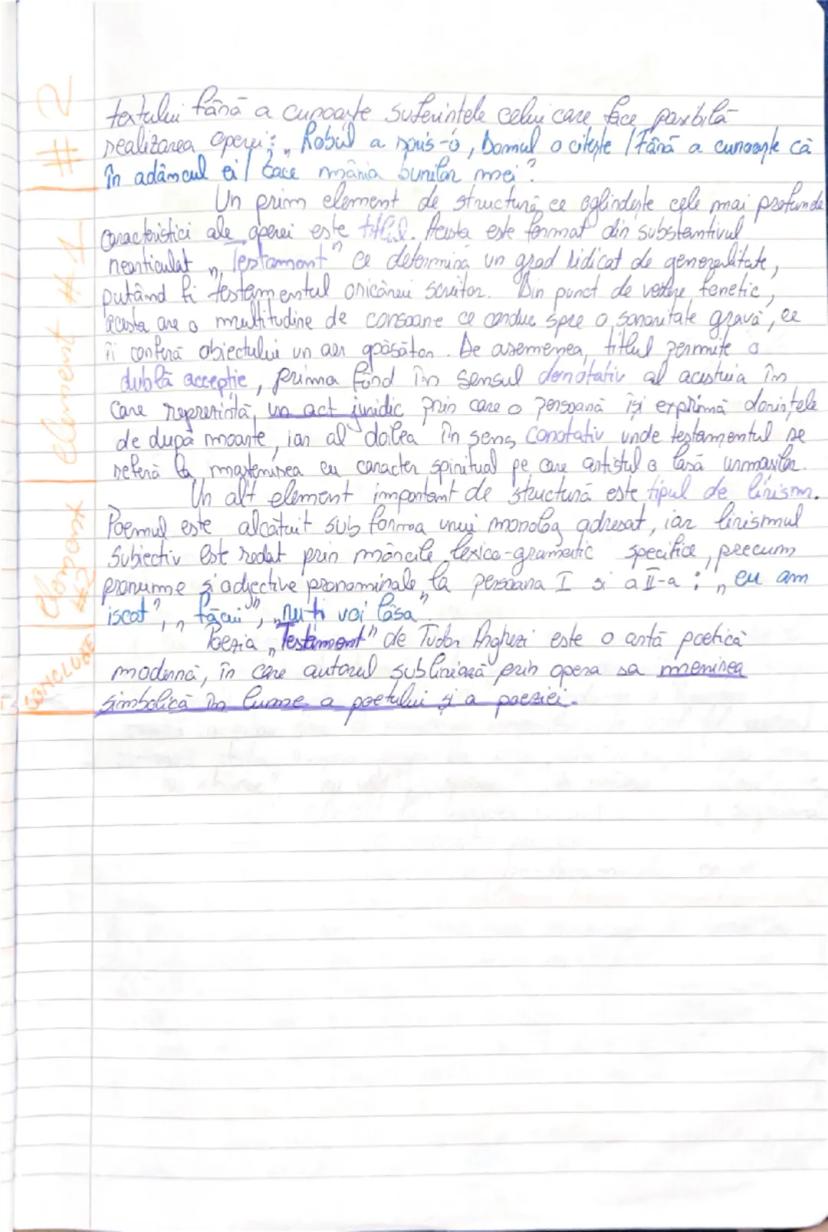 # 2
textului fără a cunoaște suferințele celui care face posibilă
realizarea operei: „Robul a scris-o, Domnul o citește / Fără a cunoaște că
în adâncul ei / Zace mânia bunilor mei"
Un prim element de structură ce oglindește cele mai profunde
caracteristici ale operei este titlul. Acesta este format din substantivul
nearticulat „Testament" ce determină un grad ridicat de generalitate,
putând fi testamentul oricărui scriitor. Din punct de vedere fonetic,
acesta are o multitudine de consoane ce conduc spre o sonoritate gravă, ce
îi conferă obiectului un aer apăsător. De asemenea, titlul permite o
dublă accepție, prima fiind în sensul denotativ al acestuia în
care reprezintă, un act juridic prin care o persoană își exprimă dorințele
de după moarte, iar al doilea în sens conotativ unde testamentul se
referă la moștenirea cu caracter spiritual pe care artistul o lasă urmașilor.
Un alt element important de structură este tipul de lirism.
Poemul este alcătuit sub forma unui monolog adresat, iar lirismul
subiectiv este redat prin mărcile lexico-gramatic specifice, precum
pronume și adjective pronominale la persoana I și a II-a: „eu am
iscat", „făcui", „nu-ți voi lăsa"
Poezia „Testament" de Tudor Arghezi este o artă poetică
modernă, în care autorul subliniază prin opera sa menirea
simbolică în lume a poetului și a poeziei.
element #1
element #2
CONCLUZIE